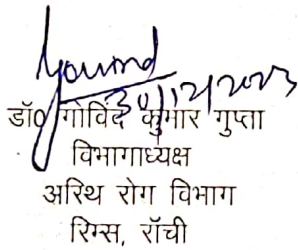 Govind
30/12/2023
डॉ0 गोविंद कुमार गुप्ता
विभागाध्यक्ष
अरिथ रोग विभाग
रिम्स, रॉची